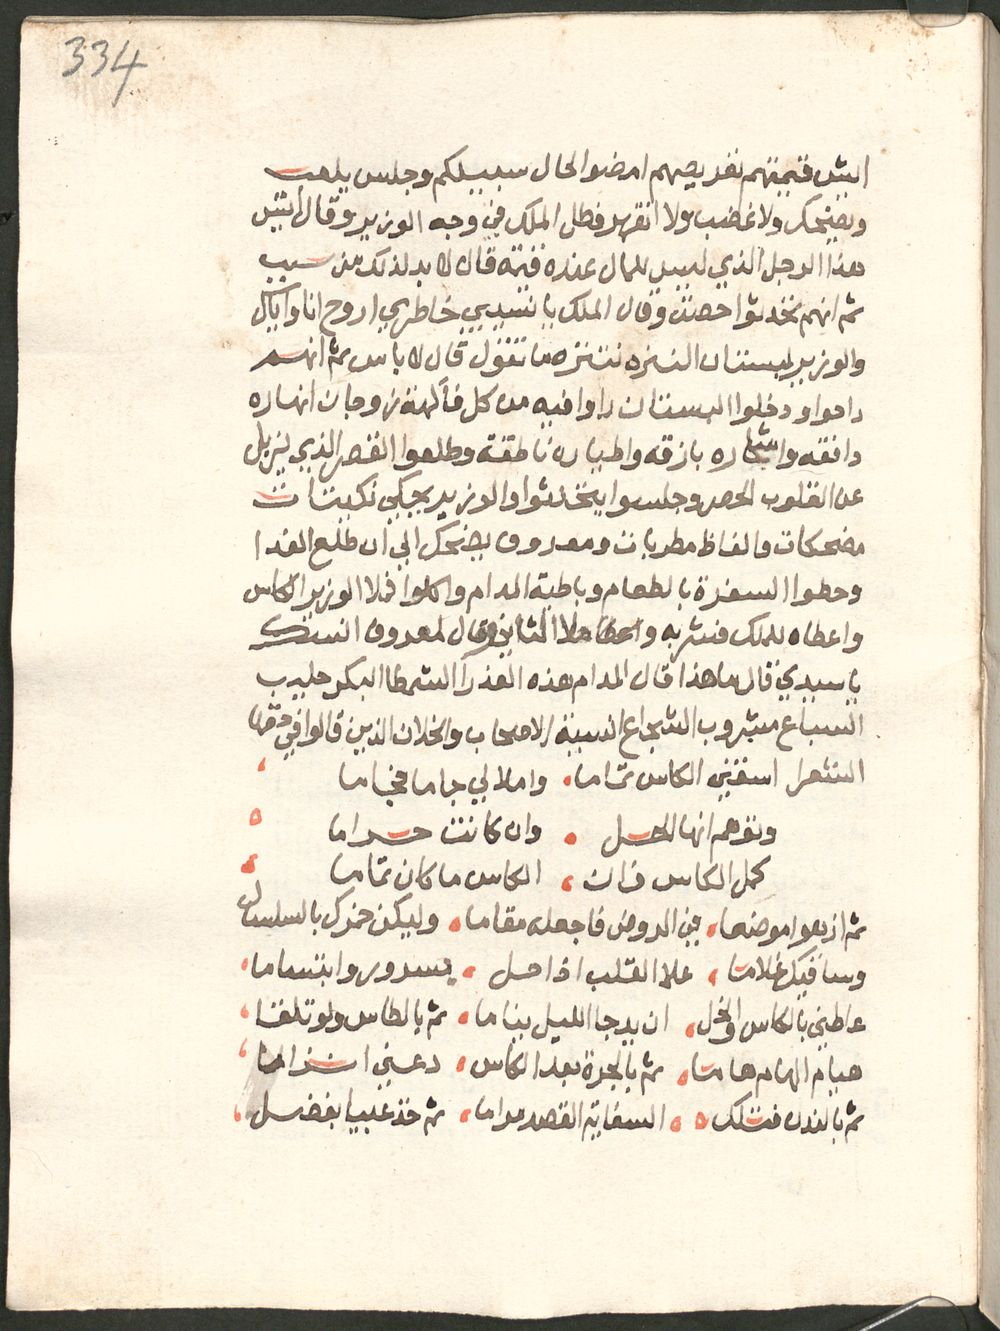 334
ايش قيمتهم نقد يصهم امضوا لحال سبيلكم وجلس يلعب
ويضحك ولا غضب ولا انقهر فطل الملك في وجه الوزير وقال ايش
هذا الرجل الذي ليس للمال عنده قيمة قال لا بد لذلك من سبب
ثم انهم تحدثوا حصة وقال الملك يا سيدي خاطري اروح انا واياك
والوزير لبستان النزه نتنزه ما تقول قال لا باس ثم انهم
راحوا ودخلوا البستان راوا فيه من كل فاكهة زوجان انهاره
دافقه واشجاره باذقه واطياره ناطقة وطلعوا القصر الذي يزيل
عن القلوب الحصر وجلسوا يتحدثوا والوزير يحكي نكيتات
مضحكات والفاظ مطربات ومعروف يضحك الي ان طلع الغدا
وحطوا السفرة بالطعام وباطية المدام واكلوا فملا الوزير الكاس
واعطاه للملك فشربه واعطا ملا الثاني وقال لمعروف
يا سيدي قال ما هذا قال المدام هذه العذرا الشمطا البكر حليب
السباع مشروب الشجاع انسية الاصحاب والخلان الذين قالوا في حقها
الشعرا اسقني الكاس تماما، واملا لي جاما فجاما
وتوهم انها الحل ، وان كانت حراما
كمل الكاس فان ، الكاس ما كان تماما
ثم ازهوا موضعا، في الروض فاجعله مقاما، وليكن خمرك بالسلسال
وساقيك غلاما، علا القلب اذا حل ، بسرور وابتساما،
عاطني بالكاس والخل، ان بدجا الليل بناما، ثم بالطاس ولو تلفا
هيام الهام هاما، ثم بالجرة بعد الكاس، دعني
ثم بالدن فتلك ، السقاية القصد مراما، ثم خذ عيبا بفضل،